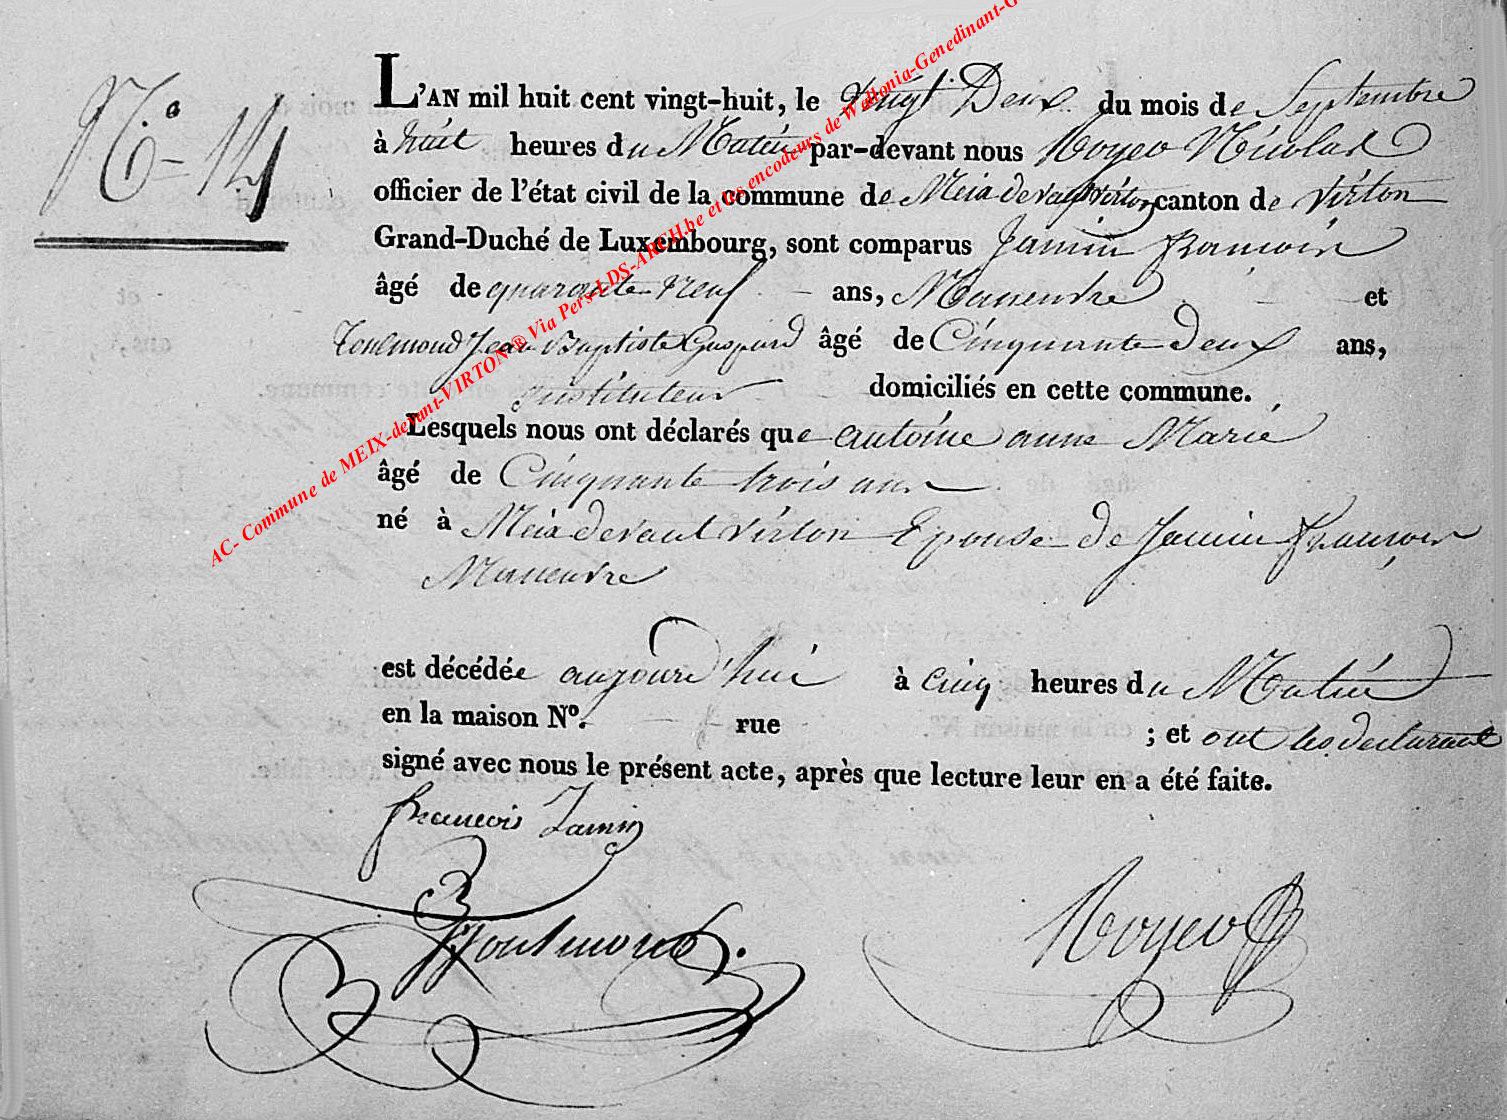 N.° 14
L'AN mil huit cent vingt-huit, le Vingt Deux du mois de Septembre
à huit heures du Matin par-devant nous Noyer Nicolas
officier de l'état civil de la commune de Meix devant virton canton de virton
Grand-Duché de Luxembourg, sont comparus Jamin francois
âgé de quarante Neuf ans, et
Toulmond Jean Baptiste Gaspard âgé de Cinquante Deux ans,
instituteur domiciliés en cette commune.
Lesquels nous ont déclarés que antoine anne Marie
âgé de Cinquante trois ans
né à Meix devant virton Epouse de Jamin francois
est décédée aujourd'hui à cinq heures du Matin
en la maison N°. rue ; et ont les declarant
signé avec nous le présent acte, après que lecture leur en a été faite.
francois Jamin
Toulmond.
Noyer
AC- Commune de MEIX-devant-VIRTON ® Via Pers-LDS-ARCH.be et les encodeurs de Wallonia-Genedinant-G